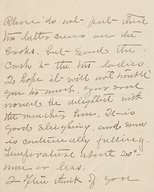 Please do not put that
the latter error on the
books. but send the
cash to the two ladies
I hope it will not trouble
you too much. Your
would be delighted with
the weather here. It is
good sleighing, and snow
is continually falling.
Temperature about 20°
more or less.
I often think of you